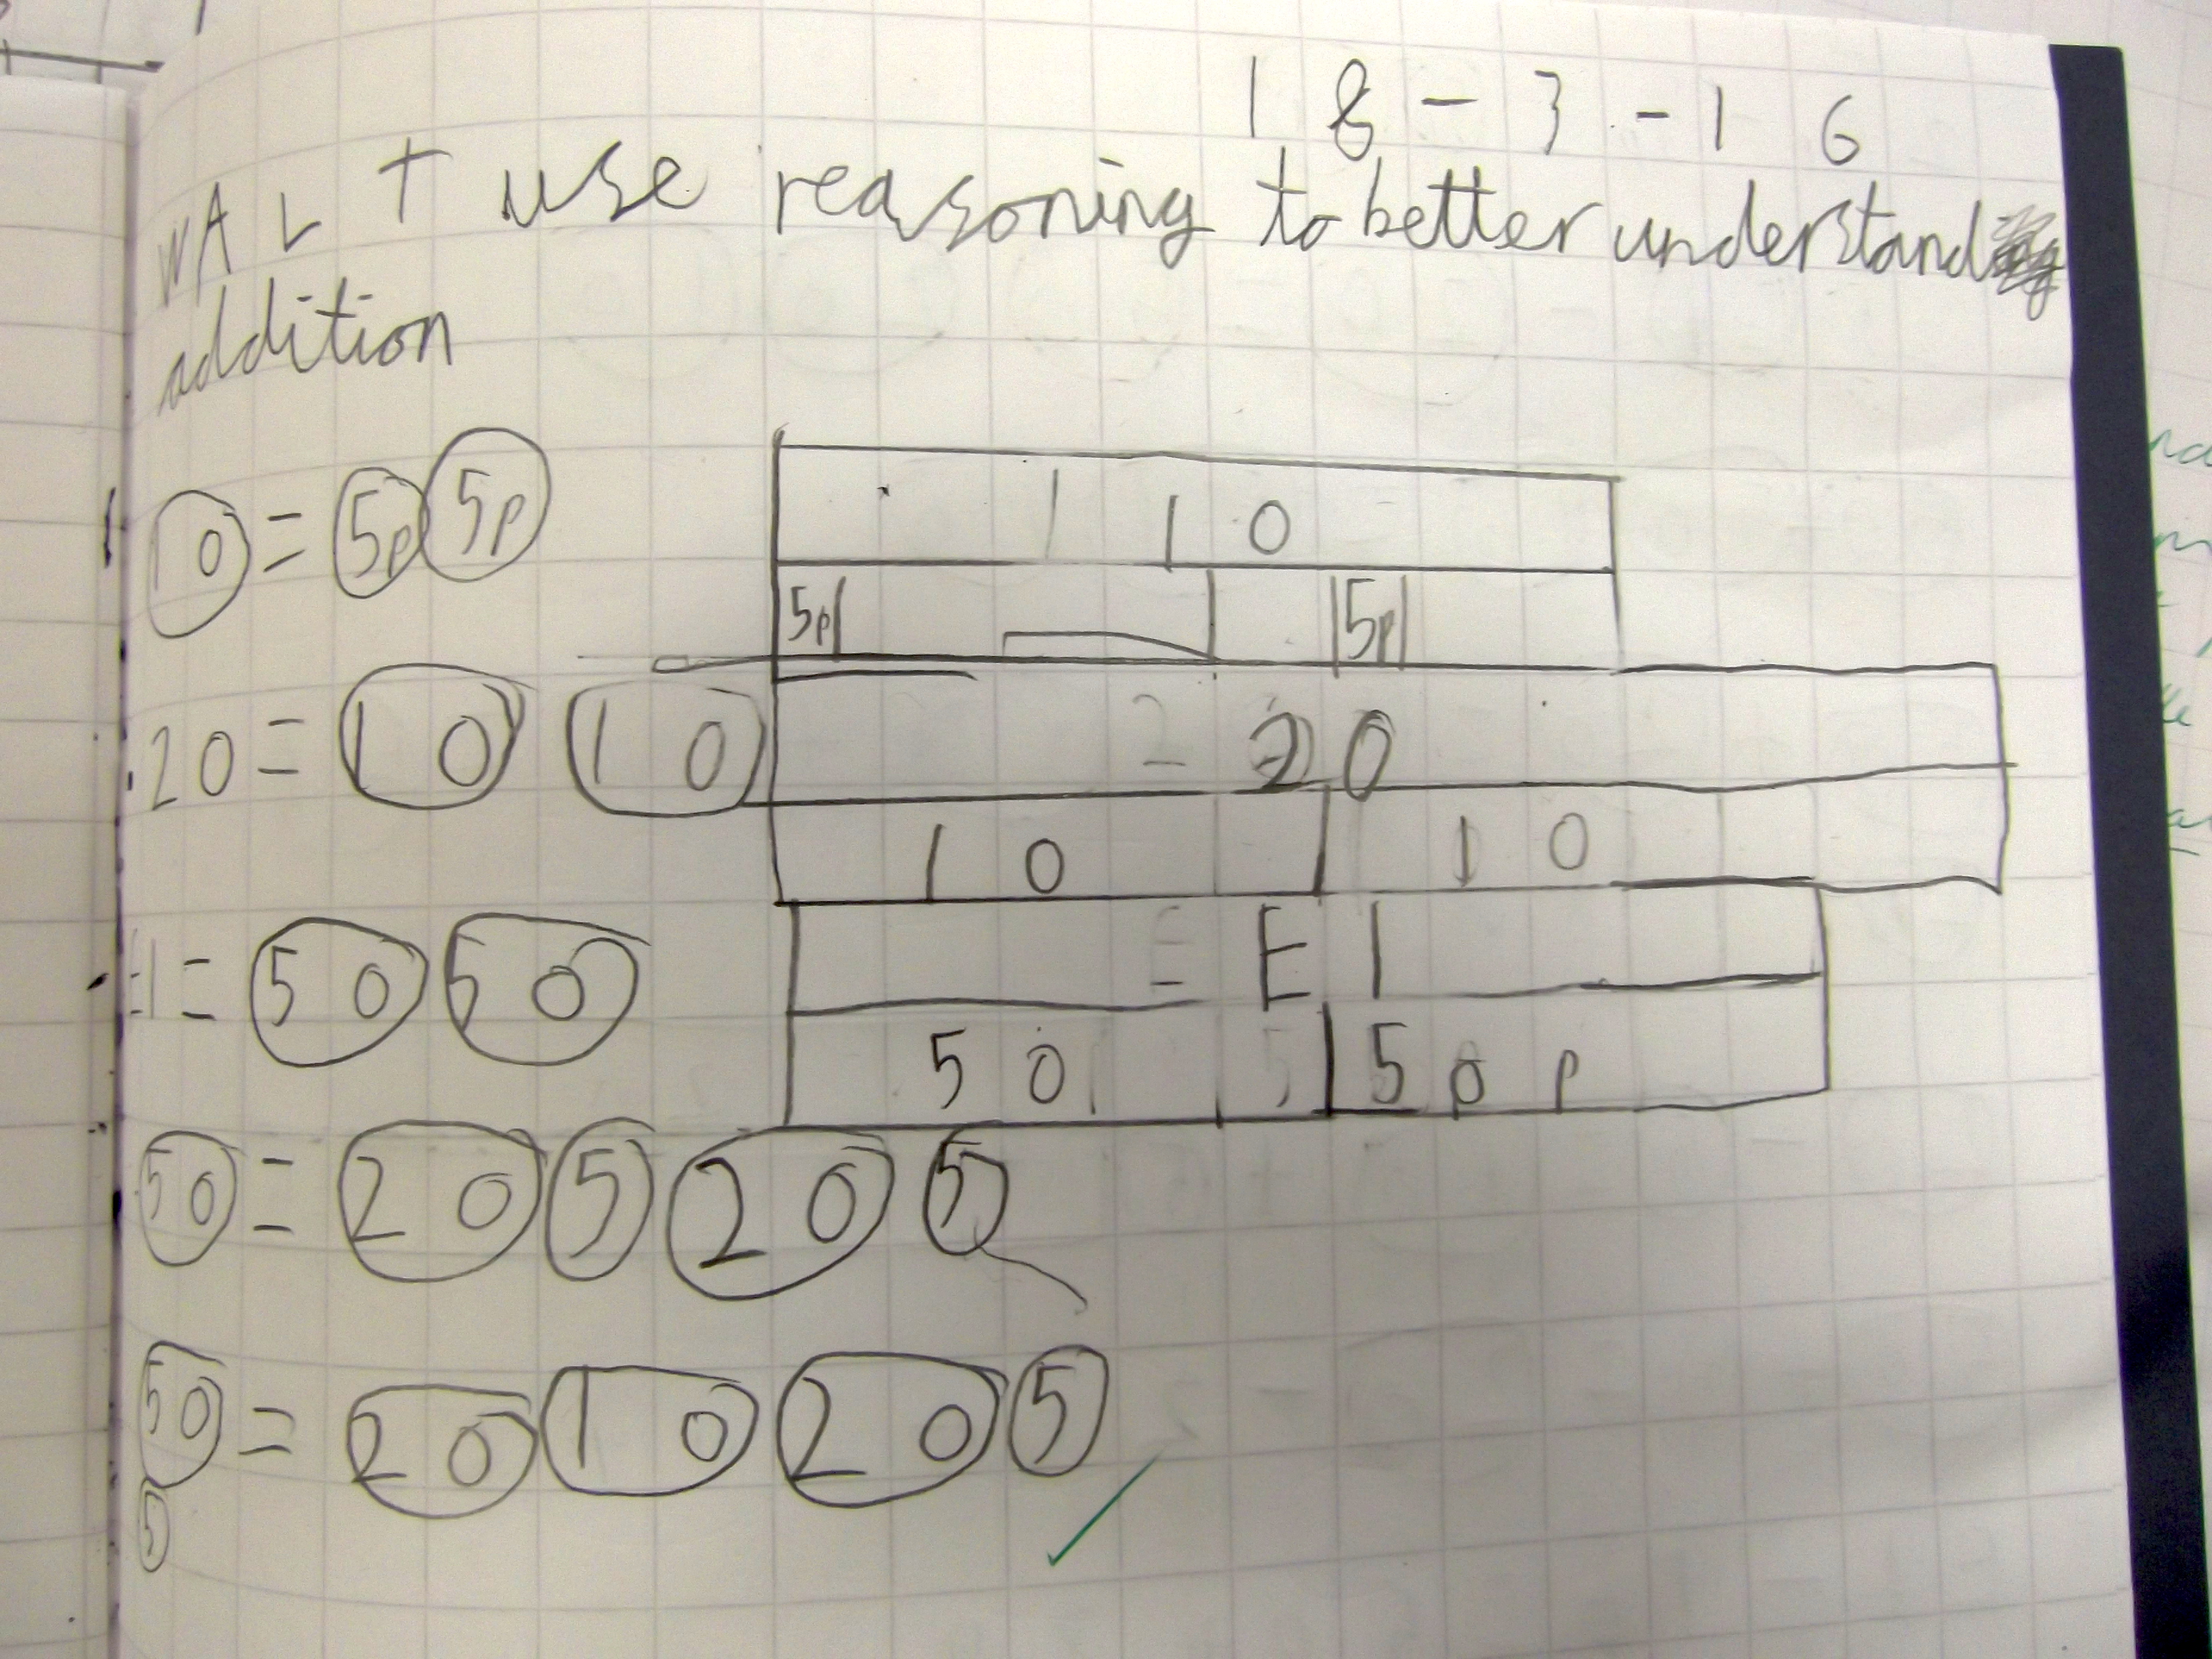 18-3-16
WALT use reasoning to better understand
addition
10 = 5p 5p
10
5p 5p
20 = 10 10
20
10 10
£1 = 50 50
£1
50 50p
50 = 20 5 20 5
50 = 20 10 20 5
5